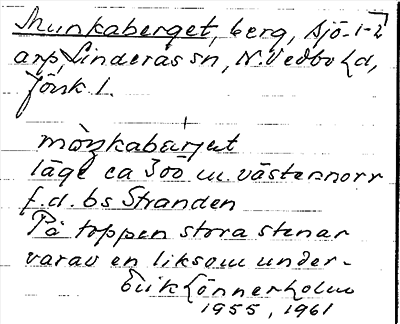 Munkaberget, berg, Sjö-1-2
arp, Linderås sn, N. Vedbo hd,
Jönk. l.
mòŋkabærjut
läge ca 300 m. västernorr
f.d. bs Stranden
På toppen stora stenar
varav en liksom under-
Erik Lönnerholm
1955, 1961